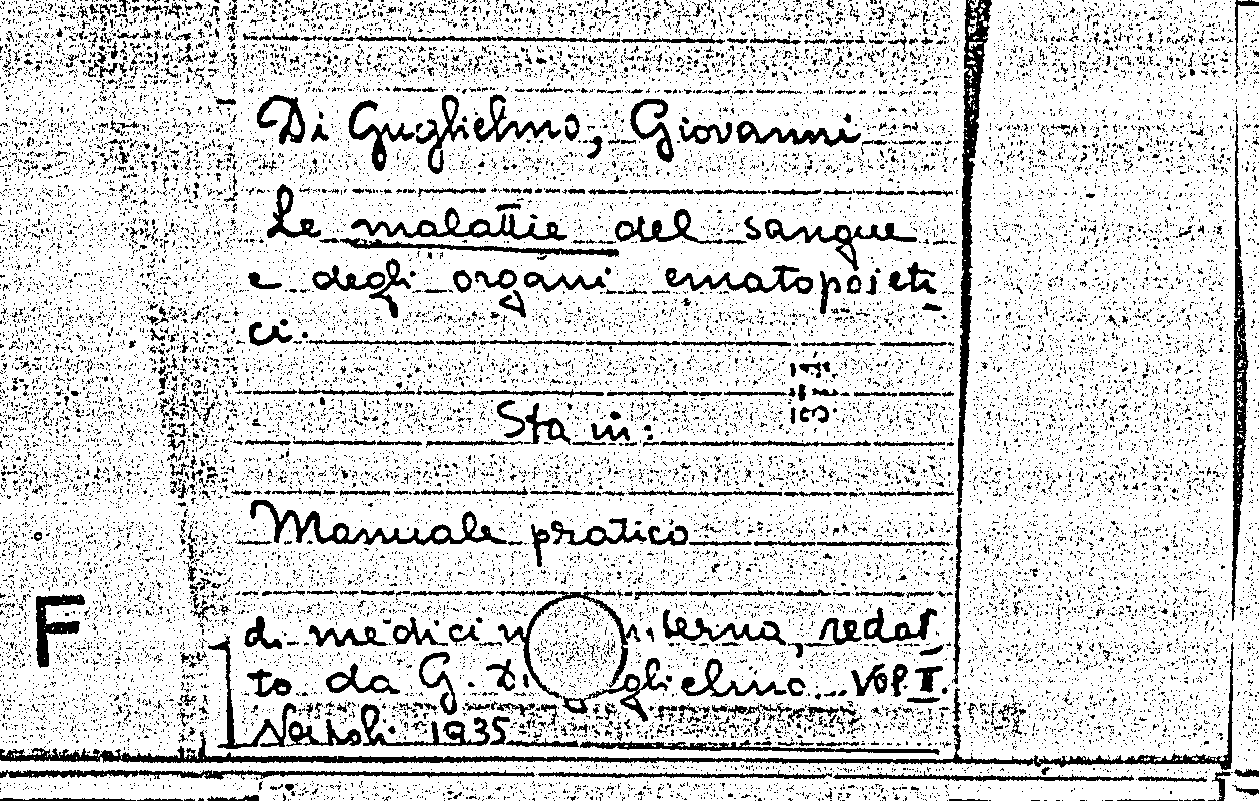 Di Guglielmo, Giovanni
Le malattie del sangue
e degli organi ematopoieti
ci.
Sta in:
Manuale pratico
F
di medicin interna, redat
to da G. Di glielmo... Vol. II.
Napoli 1935